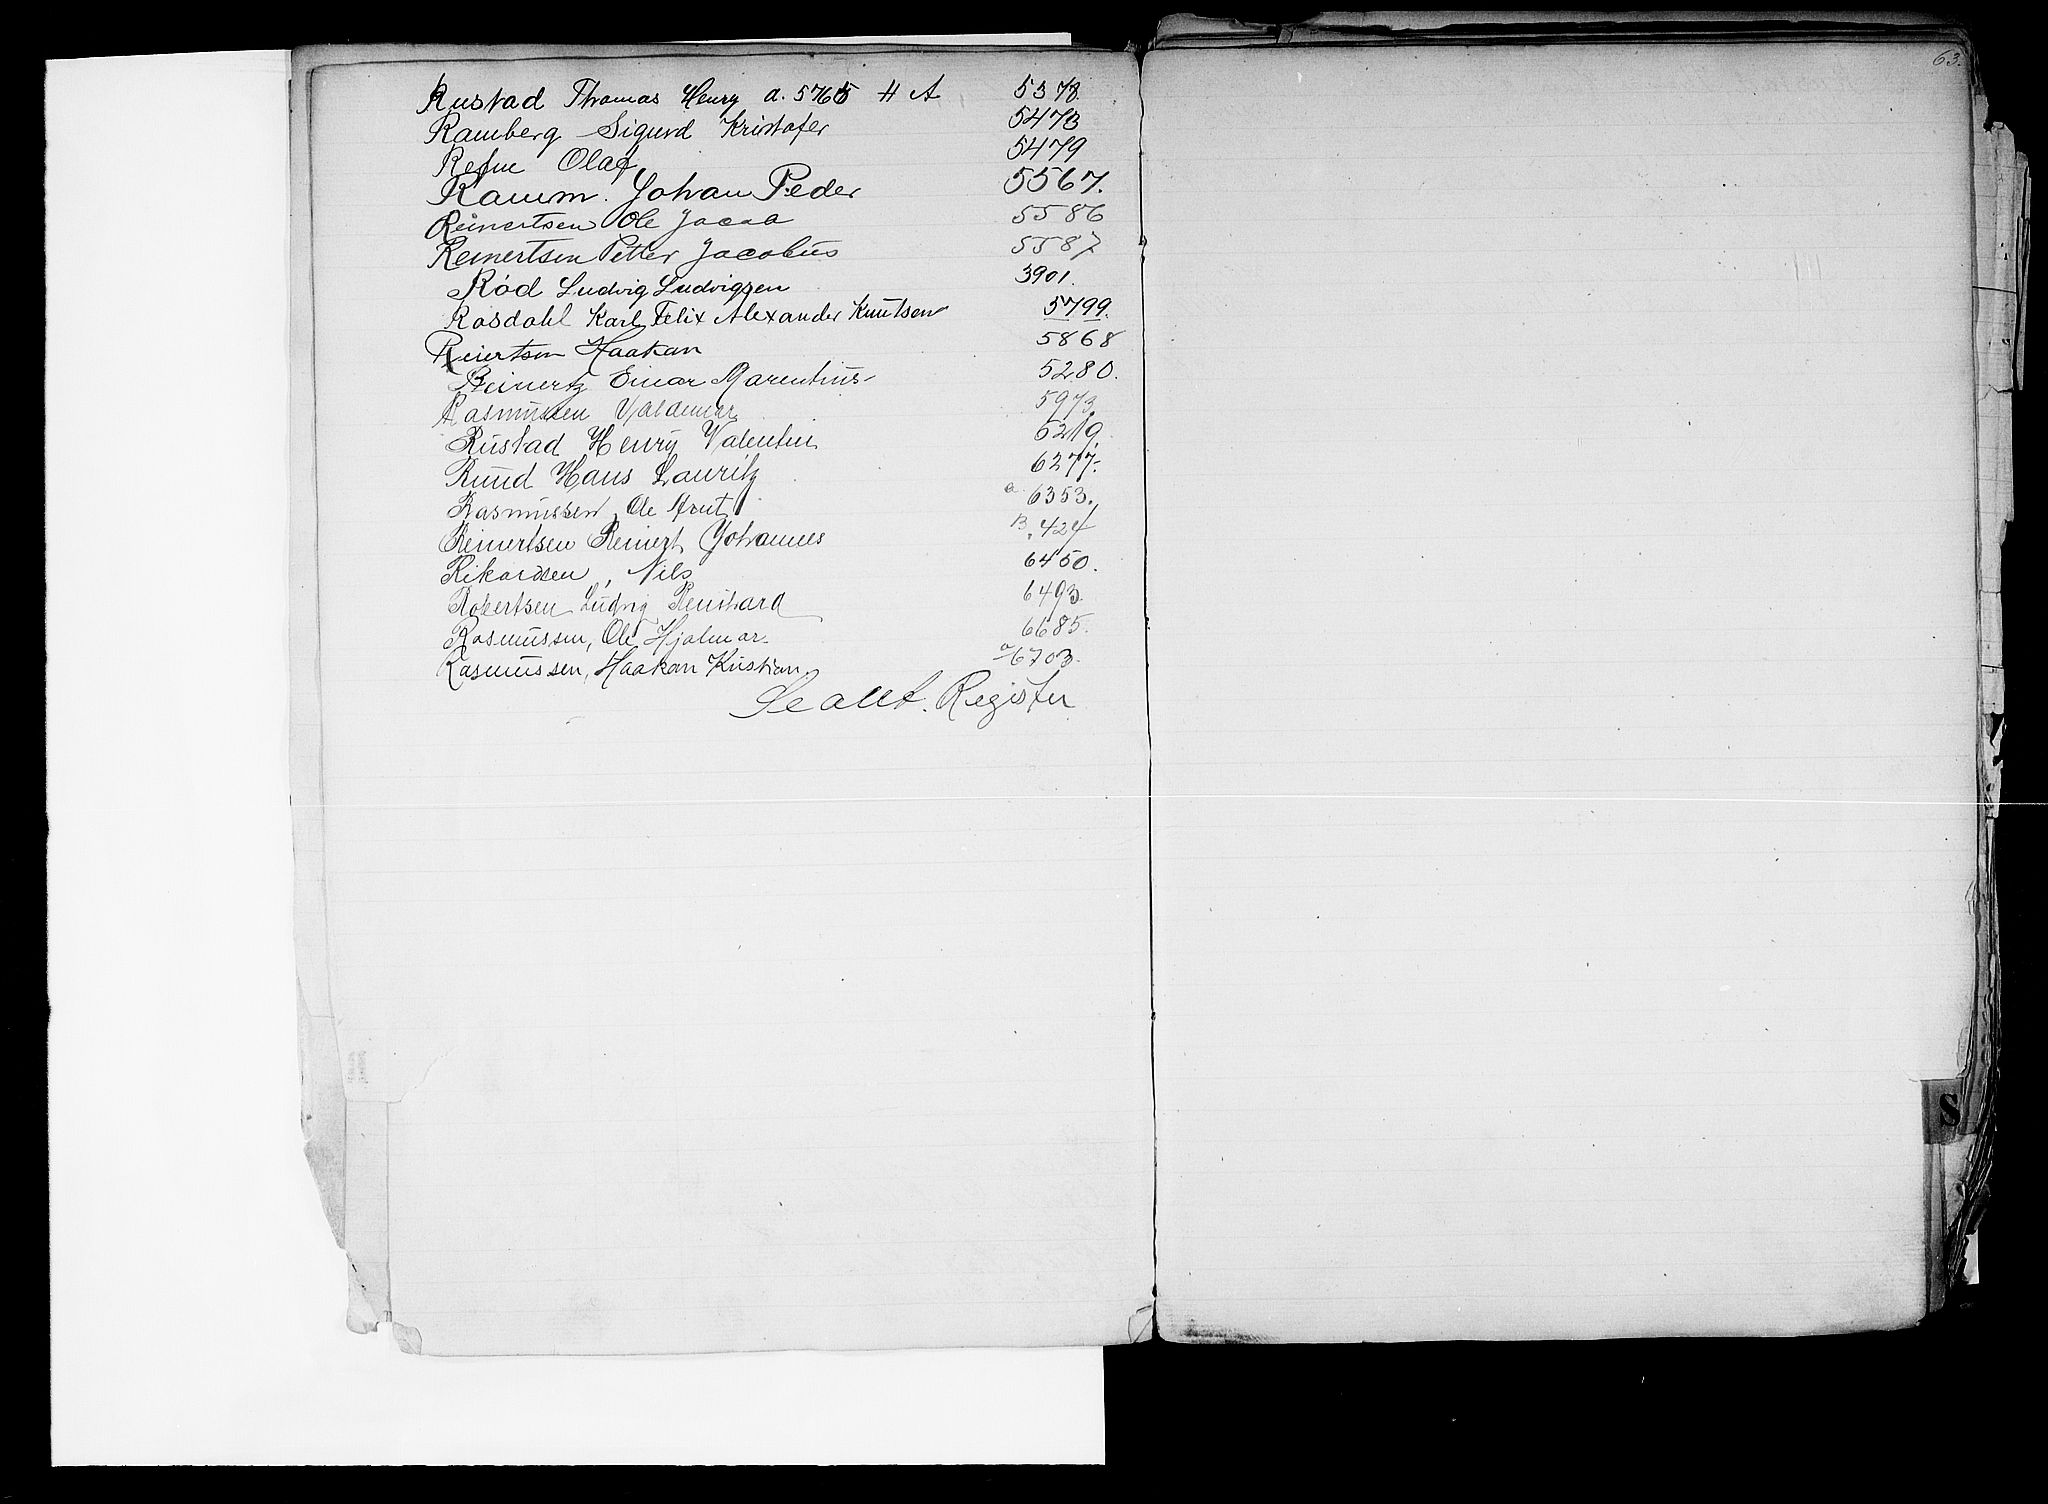 Rustad Thomas Henry a. 5765 H A 5378.
Ramberg Sigurd Kristofer 5473
Refne Olaf 5479
Ramm. Johan Peder 5567.
Reinertsen Ole Jacob 5586
Reinertsen Petter Jacobus 5587
Röd Ludvig Ludvigsen 3901.
Rosdahl Karl Felix Alexander Knutsen 5799.
Reiertsen Haakan 5868
Reinertz Einar Marentius 5280.
Rasmussen Valdemar 5973.
Rustad Henry Valentin 6219.
Ruud Hans Lauritz 6277.
Rasmussen Ole Arnt a 6353.
Reinertsen Reinert Johannes B. 424
Rikardsen, Nils 6450.
Robertsen Ludvig Reinhard 6493.
Rasmussen, Ole Hjalmar. 6685.
Rasmussen, Haakan Kristian. a 6703.
Se allf. Register
63.
S